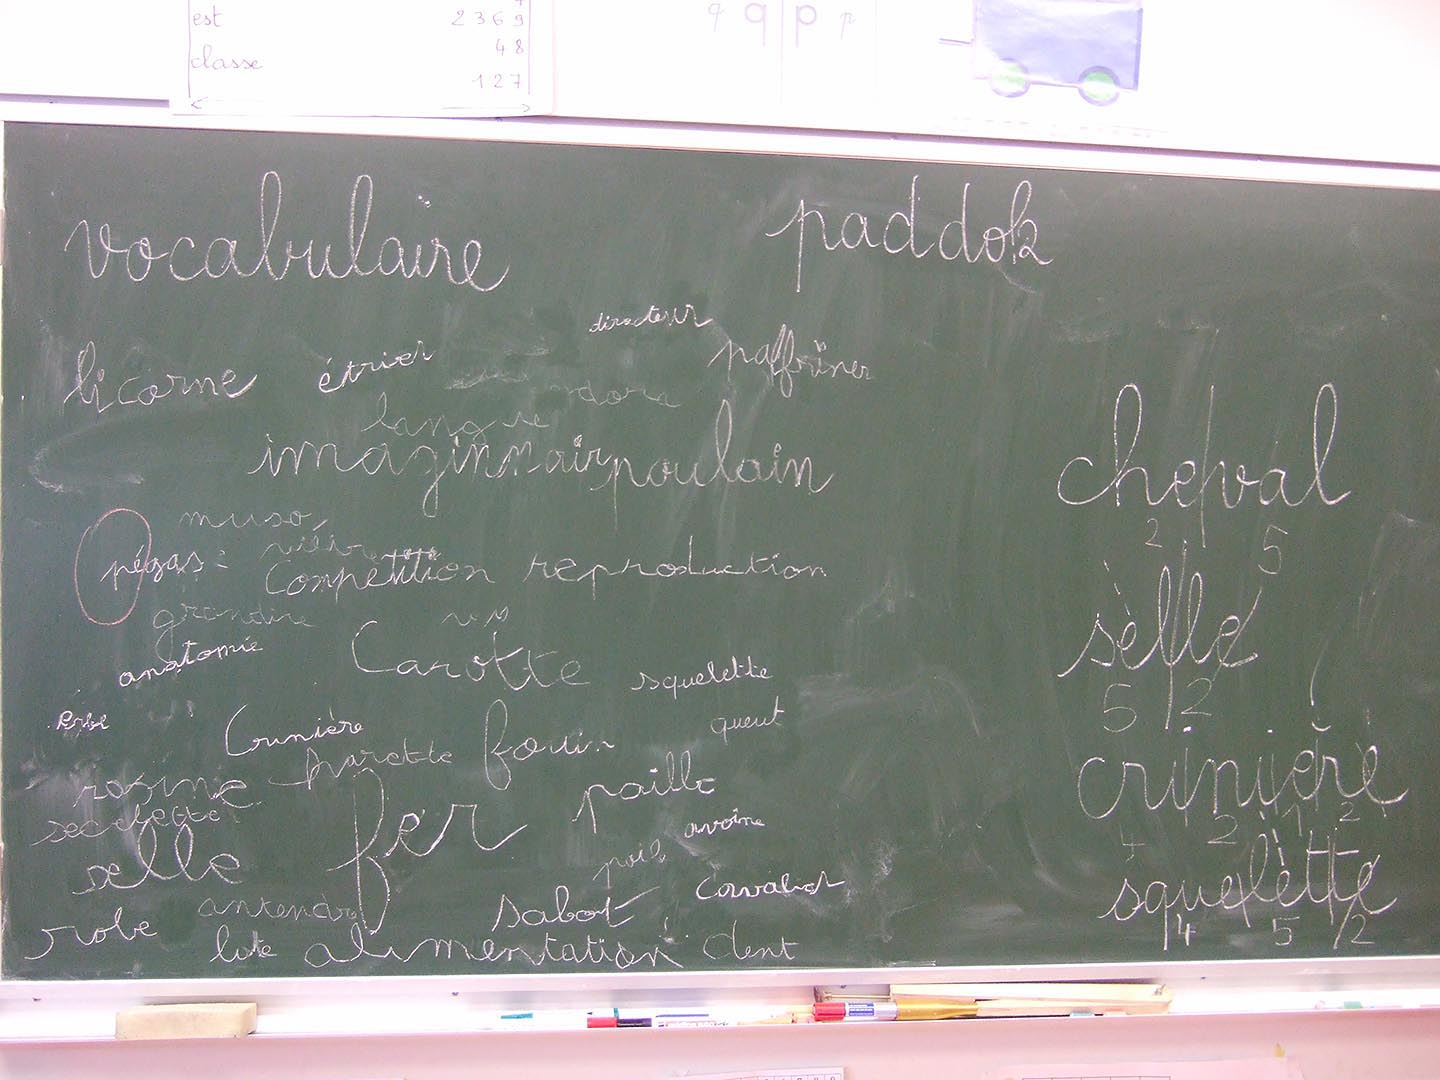 est 2369
48
classe
127
q q p p
vocabulaire paddok
directeur
licorne étrier paffriner
langue
imaginnair poulain
muso
pégas: Compétition reproduction
grandire
anatomie Carotte squelette
Crunière queut
harette fouin
rosine paille
seclette avoine
selle fer
poile
antendre sabot Corvalot
robe lote alimentation dent
cheval
2 5
selle
5 2
crinière
4 2 1 2
squelette
4 5 2